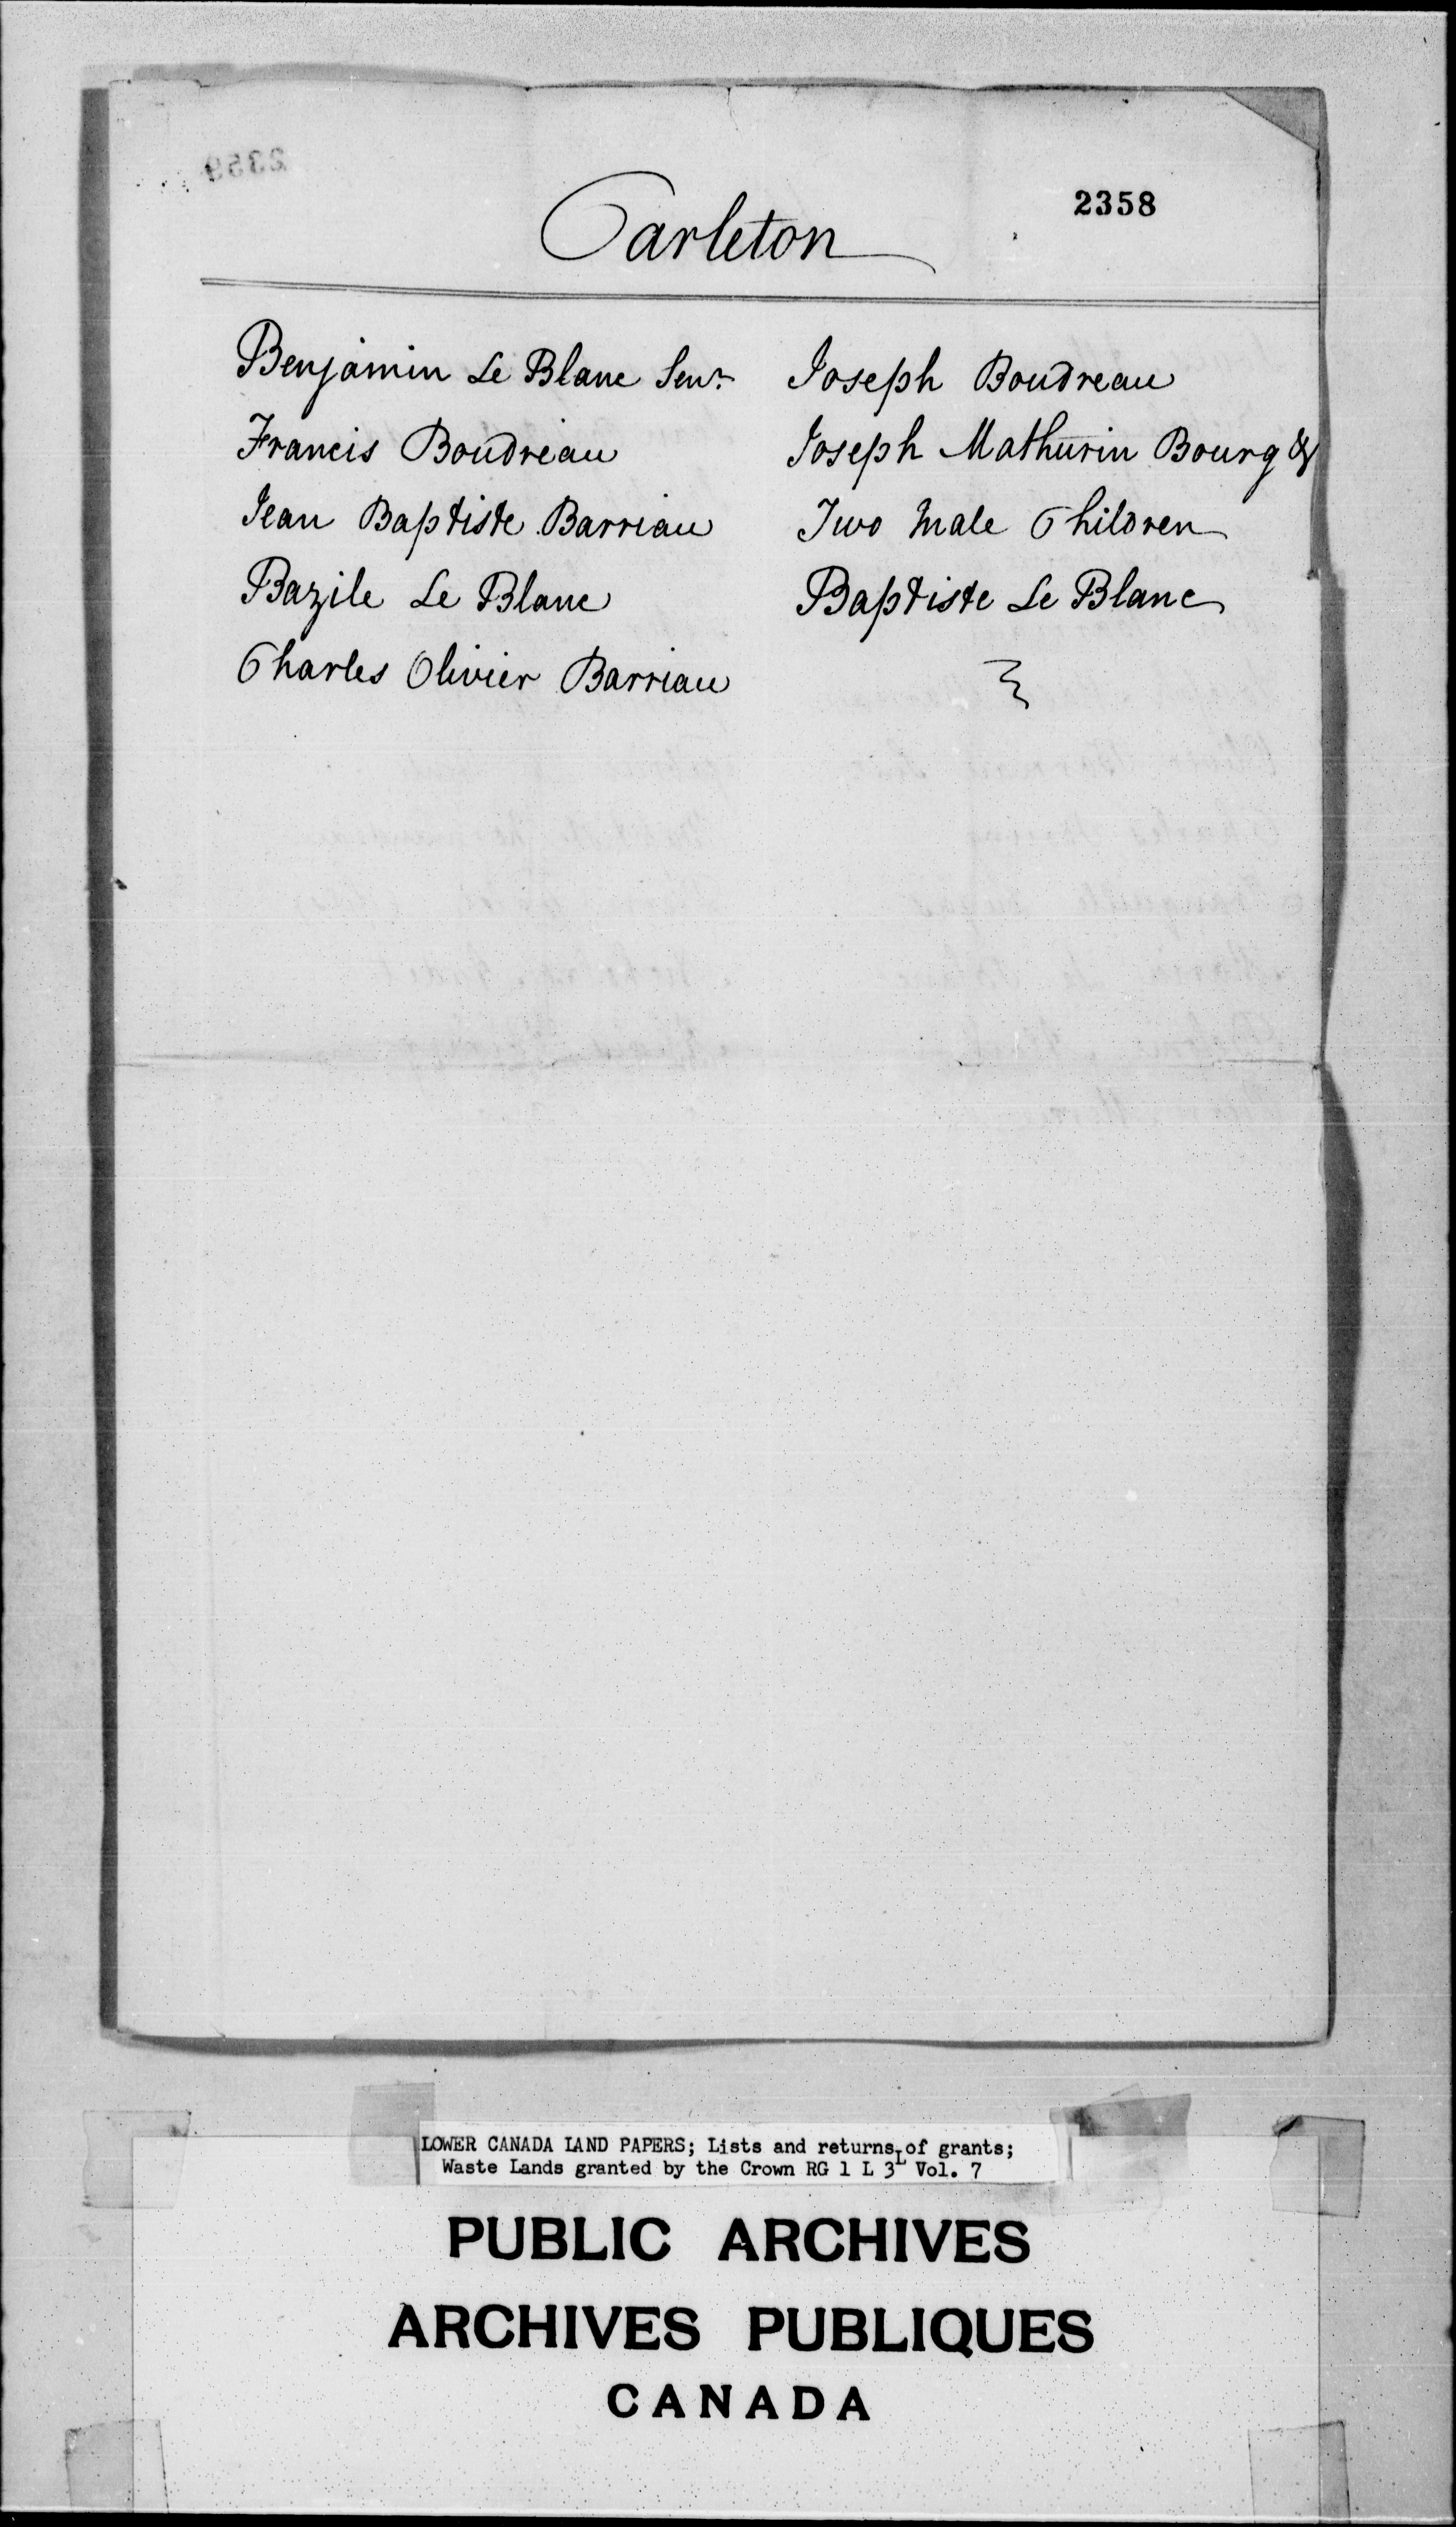 2359
2358
Carleton
Benjamin Le Blanc Senr.
Francis Boudreau
Jean Baptiste Barriau
Bazile Le Blanc
Charles Olivier Barriau
Joseph Boudreau
Joseph Mathurin Bourg &
Two Male Children
Baptiste Le Blanc
LOWER CANADA LAND PAPERS; Lists and returns of grants;
Waste Lands granted by the Crown RG 1 L 3L Vol. 7
PUBLIC ARCHIVES
ARCHIVES PUBLIQUES
CANADA